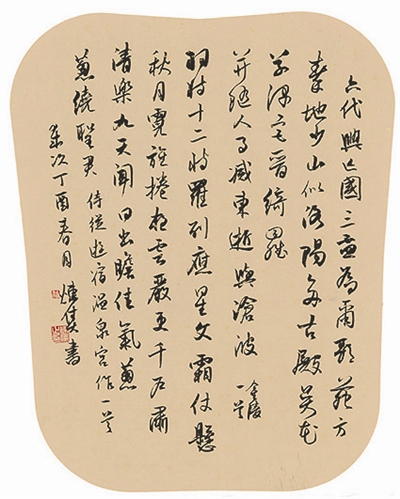 六代興亡國三盃為爾歌苑方
秦地少山似洛陽多古殿吳花
草深宮晉綺羅
并隨人事滅東逝與滄波 金陵一首
羽林十二將羅列應星文霜仗懸
秋月霓旌捲夜雲嚴更千戶肅
清樂九天聞日出瞻佳氣蔥
蔥繞聖君 侍從遊宿溫泉宮作一首
歲次丁酉春月 書